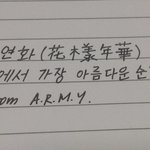 연화 (花樣年華)
에서 가장 아름다운 순
om A.R.M.Y.